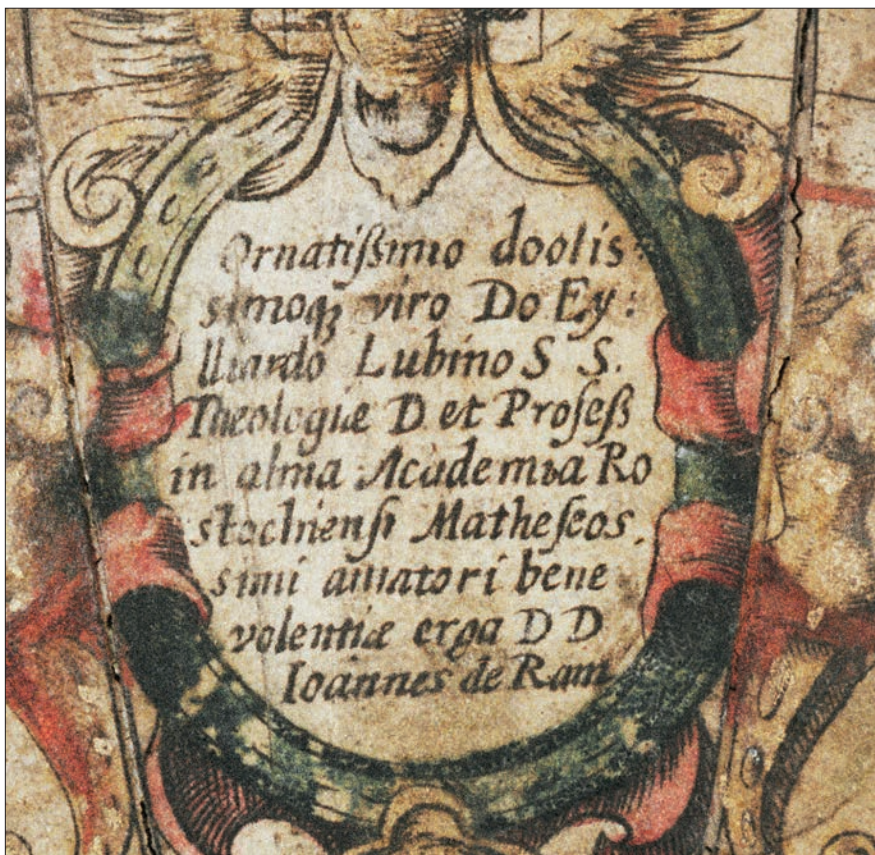 Ornatißimo doctis:
simoq́ꝫ viro Do Ey:
lhardo Lubino S S.
Theologiæ D et Profeſß
in alma Academia Ro
stochienſi Matheſeos.
simi amatori bene
volentiæ ergo D D
Ioannes de Ram